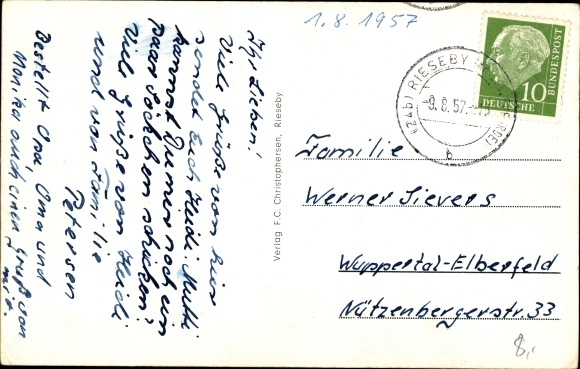 1.8.1957
Ihr Lieben!
Viele Grüße von hier
sendet Euch Heidi. Mutti
kannst Du mir noch ein
paar Socken schicken?
Viele Grüße von Heidi
und von Familie
Petersen
Bestellt Opa, Oma und
Monika auch einen Gruß von
mir.
Verlag F.C. Christophersen, Rieseby
(24b) RIESEBY
-9.8.57.
b
10
DEUTSCHE
BUNDESPOST
Familie
Werner Sievers
Wuppertal-Elberfeld
Nützenbergerstr. 33
8,-